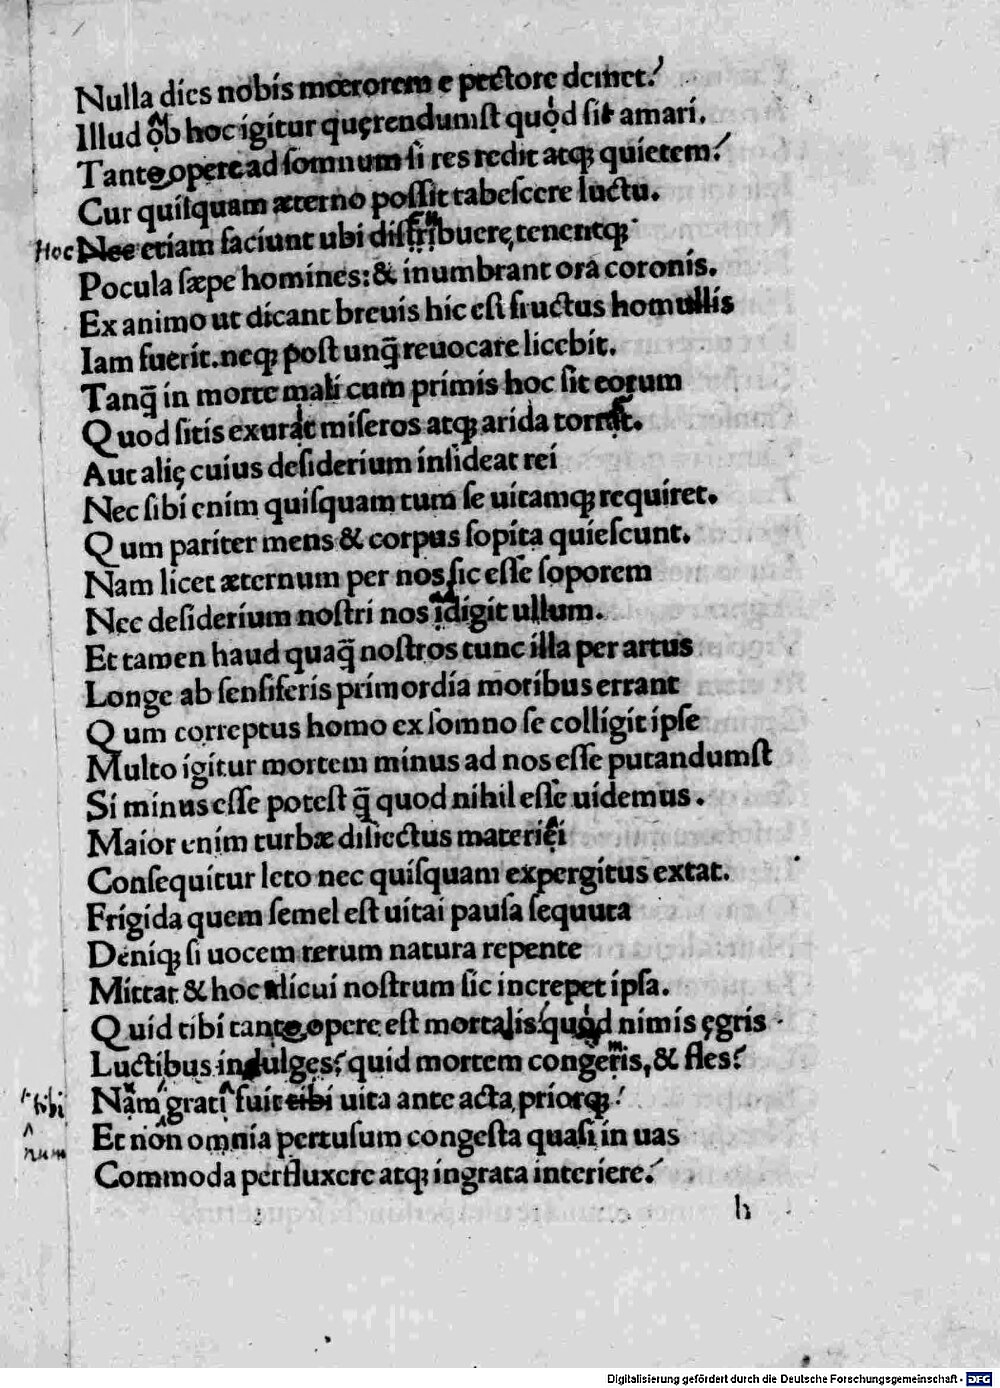 Nulla dies nobis mœrorem e pectore demet?
Illud ob hoc igitur quęrendumst quod sit amari.
Tanto opere ad somnum si res redit atqꝫ quietem?
Cur quisquam æterno possit tabescere luctu.
Hoc Nec etiam faciunt ubi discubuere, tenentqꝫ
Pocula sæpe homines: & inumbrant ora coronis.
Ex animo ut dicant breuis hic est fructus homullis
Iam fuerit. neqꝫ post unq̄ reuocare licebit.
Tanq̄ in morte mali cum primis hoc sit eorum
Quod sitis exurat miseros atqꝫ arida torrat.
Aut alię cuius desiderium insideat rei
Nec sibi enim quisquam tum se uitamqꝫ requiret.
Qum pariter mens & corpus sopita quiescunt.
Nam licet æternum per nos sic esse soporem
Nec desiderium nostri nos adigit ullum.
Et tamen haud quaq̄ nostros tunc illa per artus
Longe ab sensiferis primordia motibus errant
Qum correptus homo ex somno se colligit ipse
Multo igitur mortem minus ad nos esse putandumst
Si minus esse potest q̄ quod nihil esse uidemus.
Maior enim turbæ disiectus materiei
Consequitur leto nec quisquam expergitus extat.
Frigida quem semel est uitai pausa sequuta
Deniqꝫ si uocem rerum natura repente
Mittat & hoc alicui nostrum sic increpet ipsa.
Quid tibi tanto opere est mortalis? quod nimis ęgris
Luctibus indulges? quid mortem congemis, & fles?
tibi Nam grati fuit tibi uita ante acta, priorqꝫ?
Et non omnia pertusum congesta quasi in uas
num
Commoda perfluxere atqꝫ ingrata interiere?
h
Digitalisierung gefördert durch die Deutsche Forschungsgemeinschaft - DFG